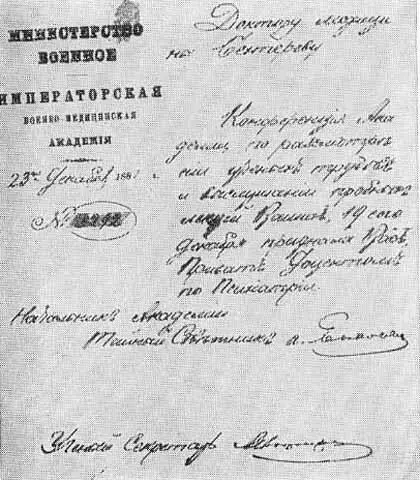 МИНИСТЕРСТВО
ВОЕННОЕ
ИМПЕРАТОРСКАЯ
ВОЕННО-МЕДИЦИНСКАЯ
АКАДЕМІЯ
23го Декабря 188
№
Доктору медици
ны Бехтереву
Конференція Ака
деміи по разсмотрѣ
ніи ученыхъ трудовъ
и выслушаніи пробныхъ
лекцій Вашихъ, 19 сего
Декабря признала Васъ
Приватъ Доцентомъ
по Психіатріи.
Начальникъ Академіи
Тайный Совѣтникъ
Ученый Секретарь